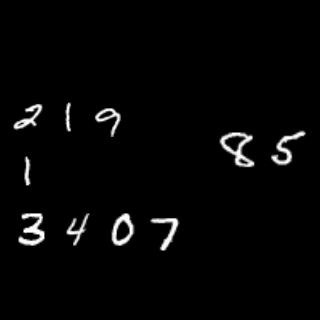 219
1
3407
85